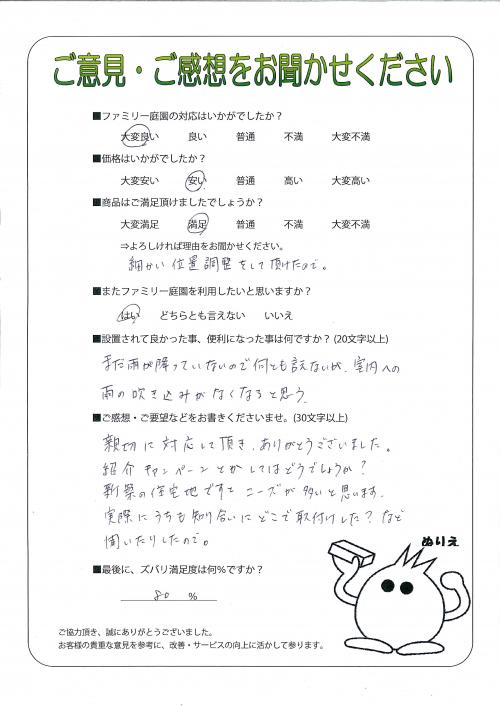 ご意見・ご感想をお聞かせください
■ファミリー庭園の対応はいかがでしたか？
大変良い 良い 普通 不満 大変不満
■価格はいかがでしたか？
大変安い 安い 普通 高い 大変高い
■商品はご満足頂けましたでしょうか？
大変満足 満足 普通 不満 大変不満
⇒よろしければ理由をお聞かせください。
細かい位置調整をして頂けたので。
■またファミリー庭園を利用したいと思いますか？
はい どちらとも言えない いいえ
■設置されて良かった事、便利になった事は何ですか？(20文字以上)
まだ雨が降っていないので何とも言えないが、室内への
雨の吹き込みがなくなると思う。
■ご感想・ご要望などをお書きくださいませ。(30文字以上)
親切に対応して頂き、ありがとうございました。
紹介キャンペーンとかしてはどうでしょうか？
新築の住宅地ですと ニーズが多いと思います。
実際にうちも知り合いにどこで取付けした？など
聞いたりしたので。
ぬりえ
■最後に、ズバリ満足度は何％ですか？
80 ％
ご協力頂き、誠にありがとうございました。
お客様の貴重な意見を参考に、改善・サービスの向上に活かして参ります。